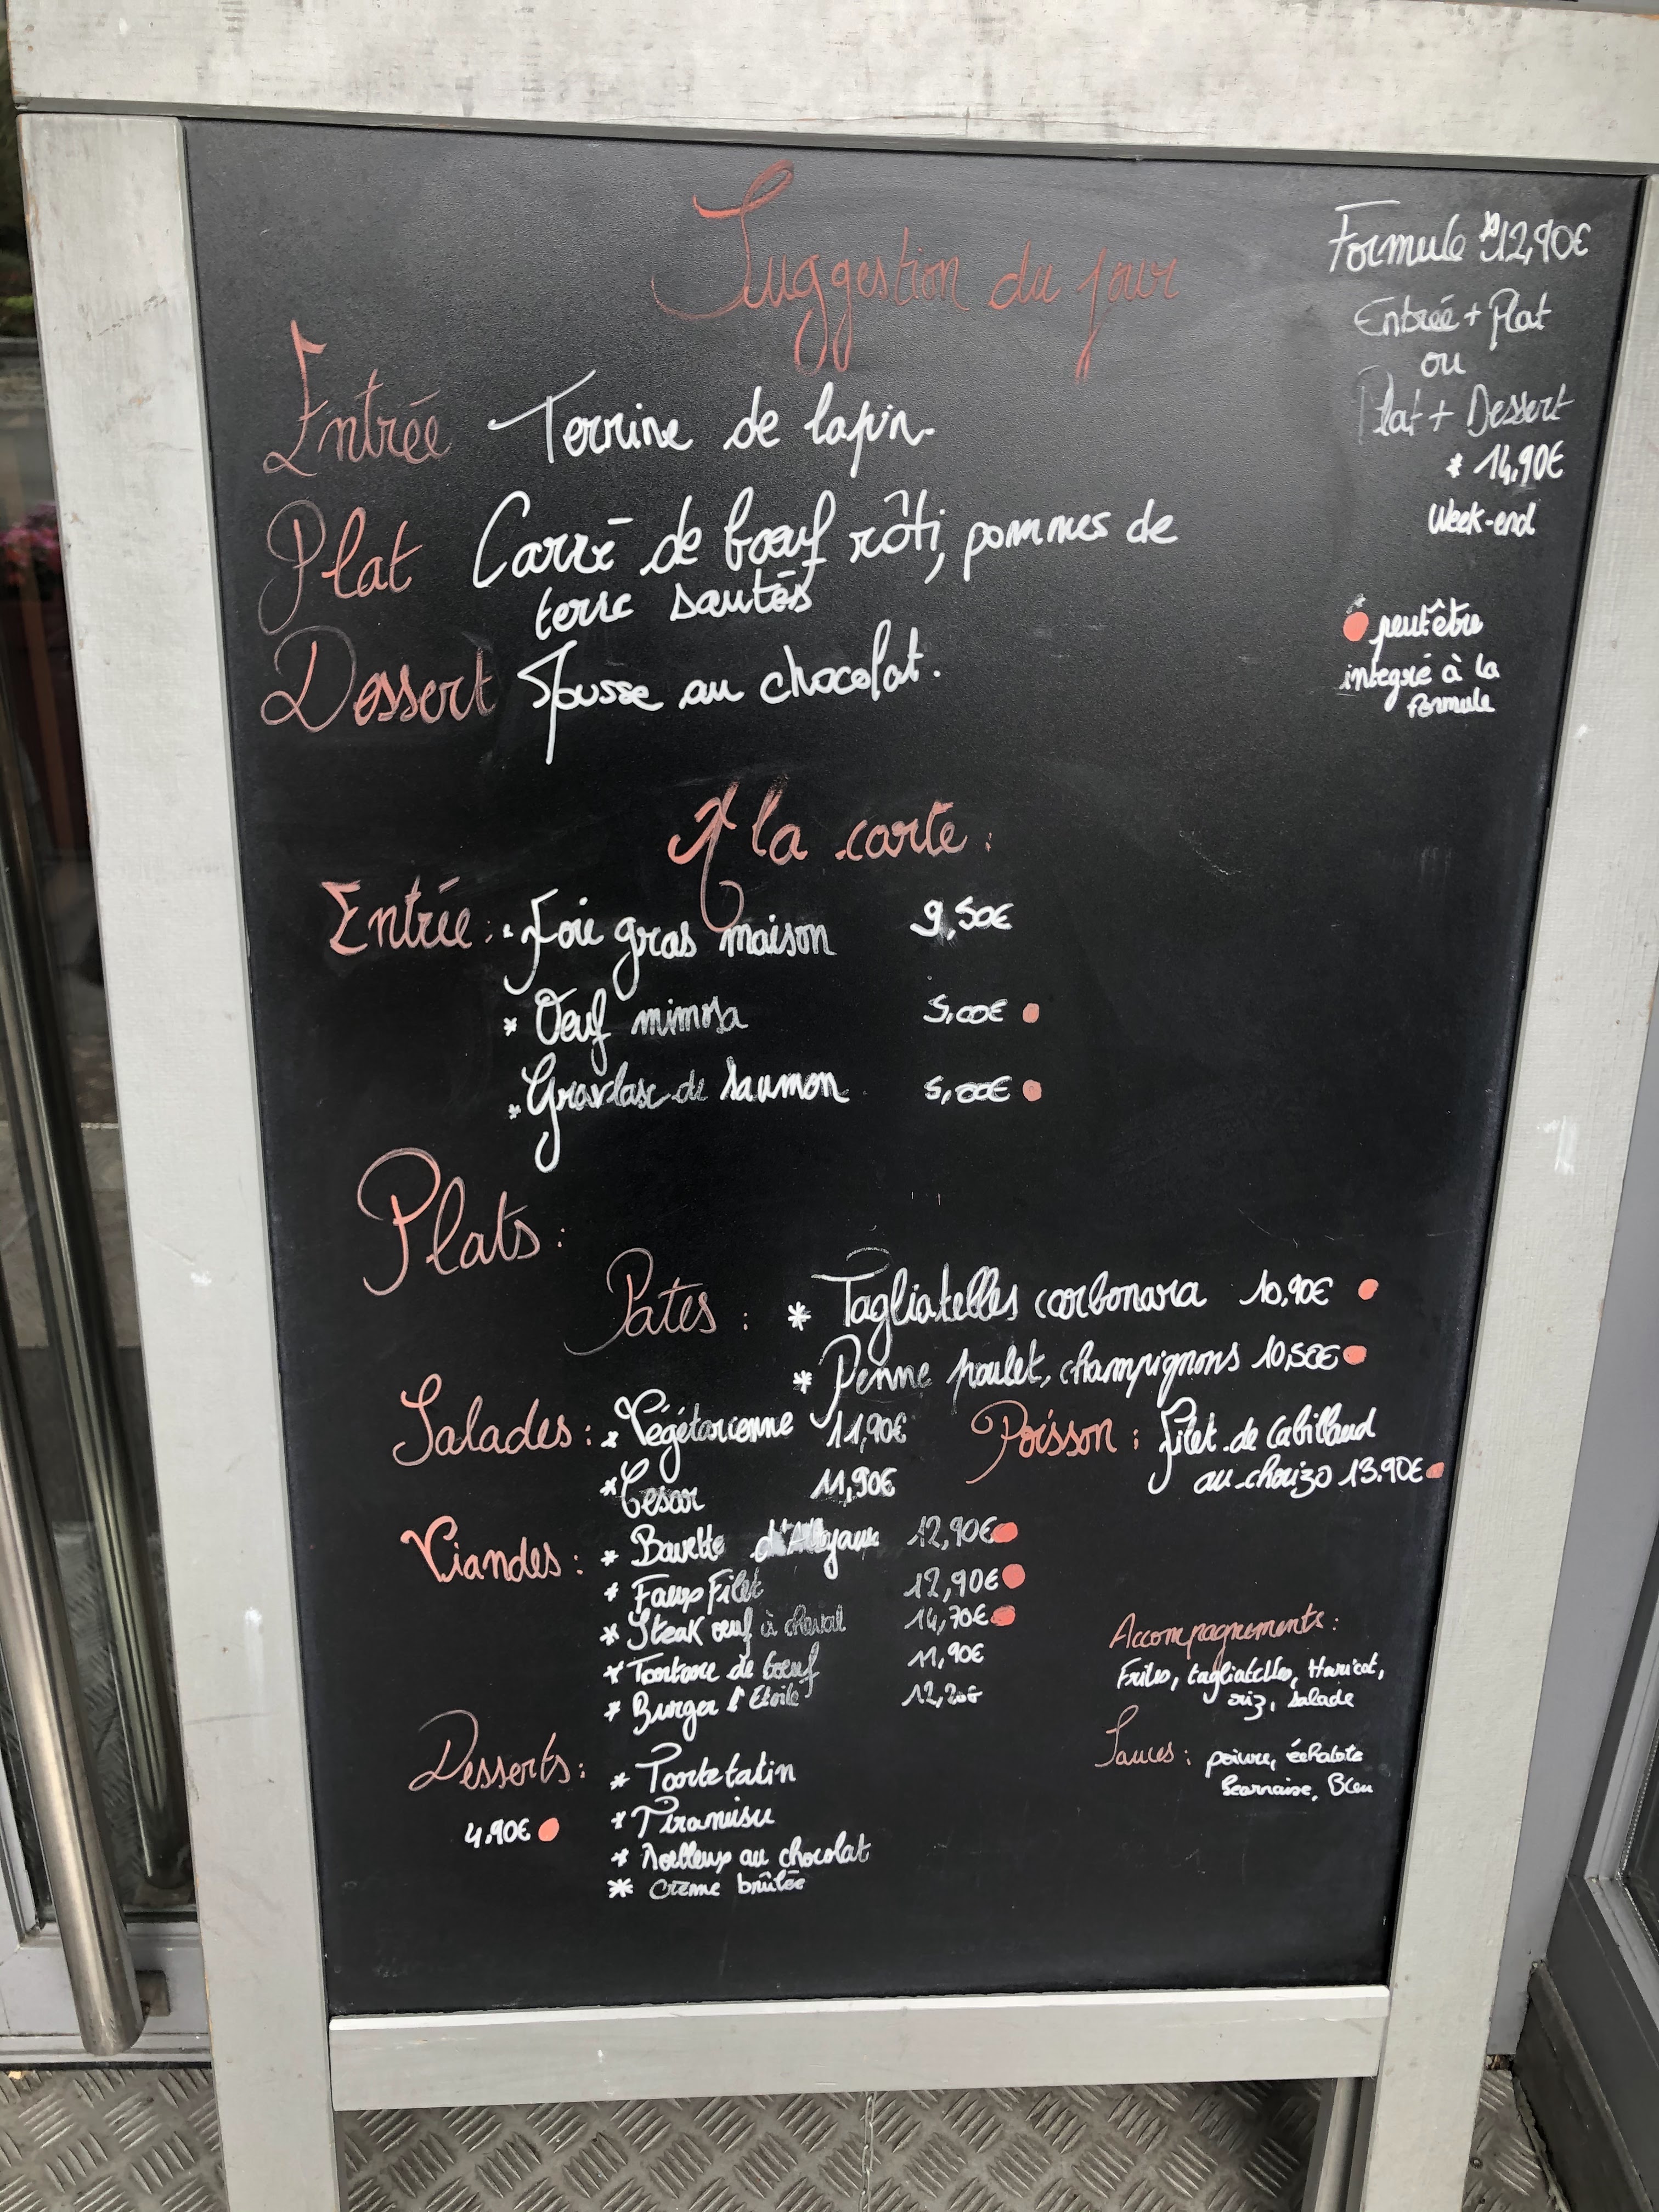 Suggestion du jour
Entrée Terrine de lapin.
Plat Carré de bœuf rôti, pommes de
terre sautés
Dessert Mousse au chocolat.
Formule 12,90€
Entrée + Plat
ou
Plat + Dessert
* 14,90€
Week-end
peut être
integré à la
formule
A la carte :
Entrée : * Foie gras maison 9,50€
* Oeuf mimosa 5,00€
* Gravlax de saumon 5,00€
Plats :
Pates : * Tagliatelles carbonara 10,90€
* Penne poulet, champignons 10,50€
Salades : * Végétarienne 11,90€
* Cesar 11,90€
Poisson : filet de cabillaud
au chorizo 13.90€
Viandes : * Bavette d'Alloyaux 12,90€
* Faux Filet 12,90€
* Steak œuf à cheval 14,70€
* Tartare de bœuf 11,90€
* Burger l'Etoile 12,20€
Accompagnements :
Frites, tagliatelles, Haricot,
riz, salade
Sauces : poivre, échalote
Bearnaise, Bleu
Desserts : * Tarte tatin
4,90€ * Tiramisu
* Moelleux au chocolat
* Crème brûlée